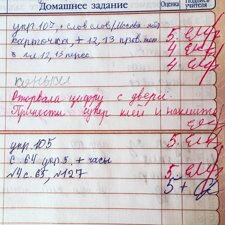 Домашнее задание
Оценка
Подпись учителя
упр 107, + слов слов/Москва
5
карточка, + 12, 13 пров.
4
в 12, 13 перес
4
каникулы
Оторвала цифры с двери.
Принести супер клей и наклеить
упр 105
5
с. 64 упр 5, + часы
№4 с. 65, №127
5
5+